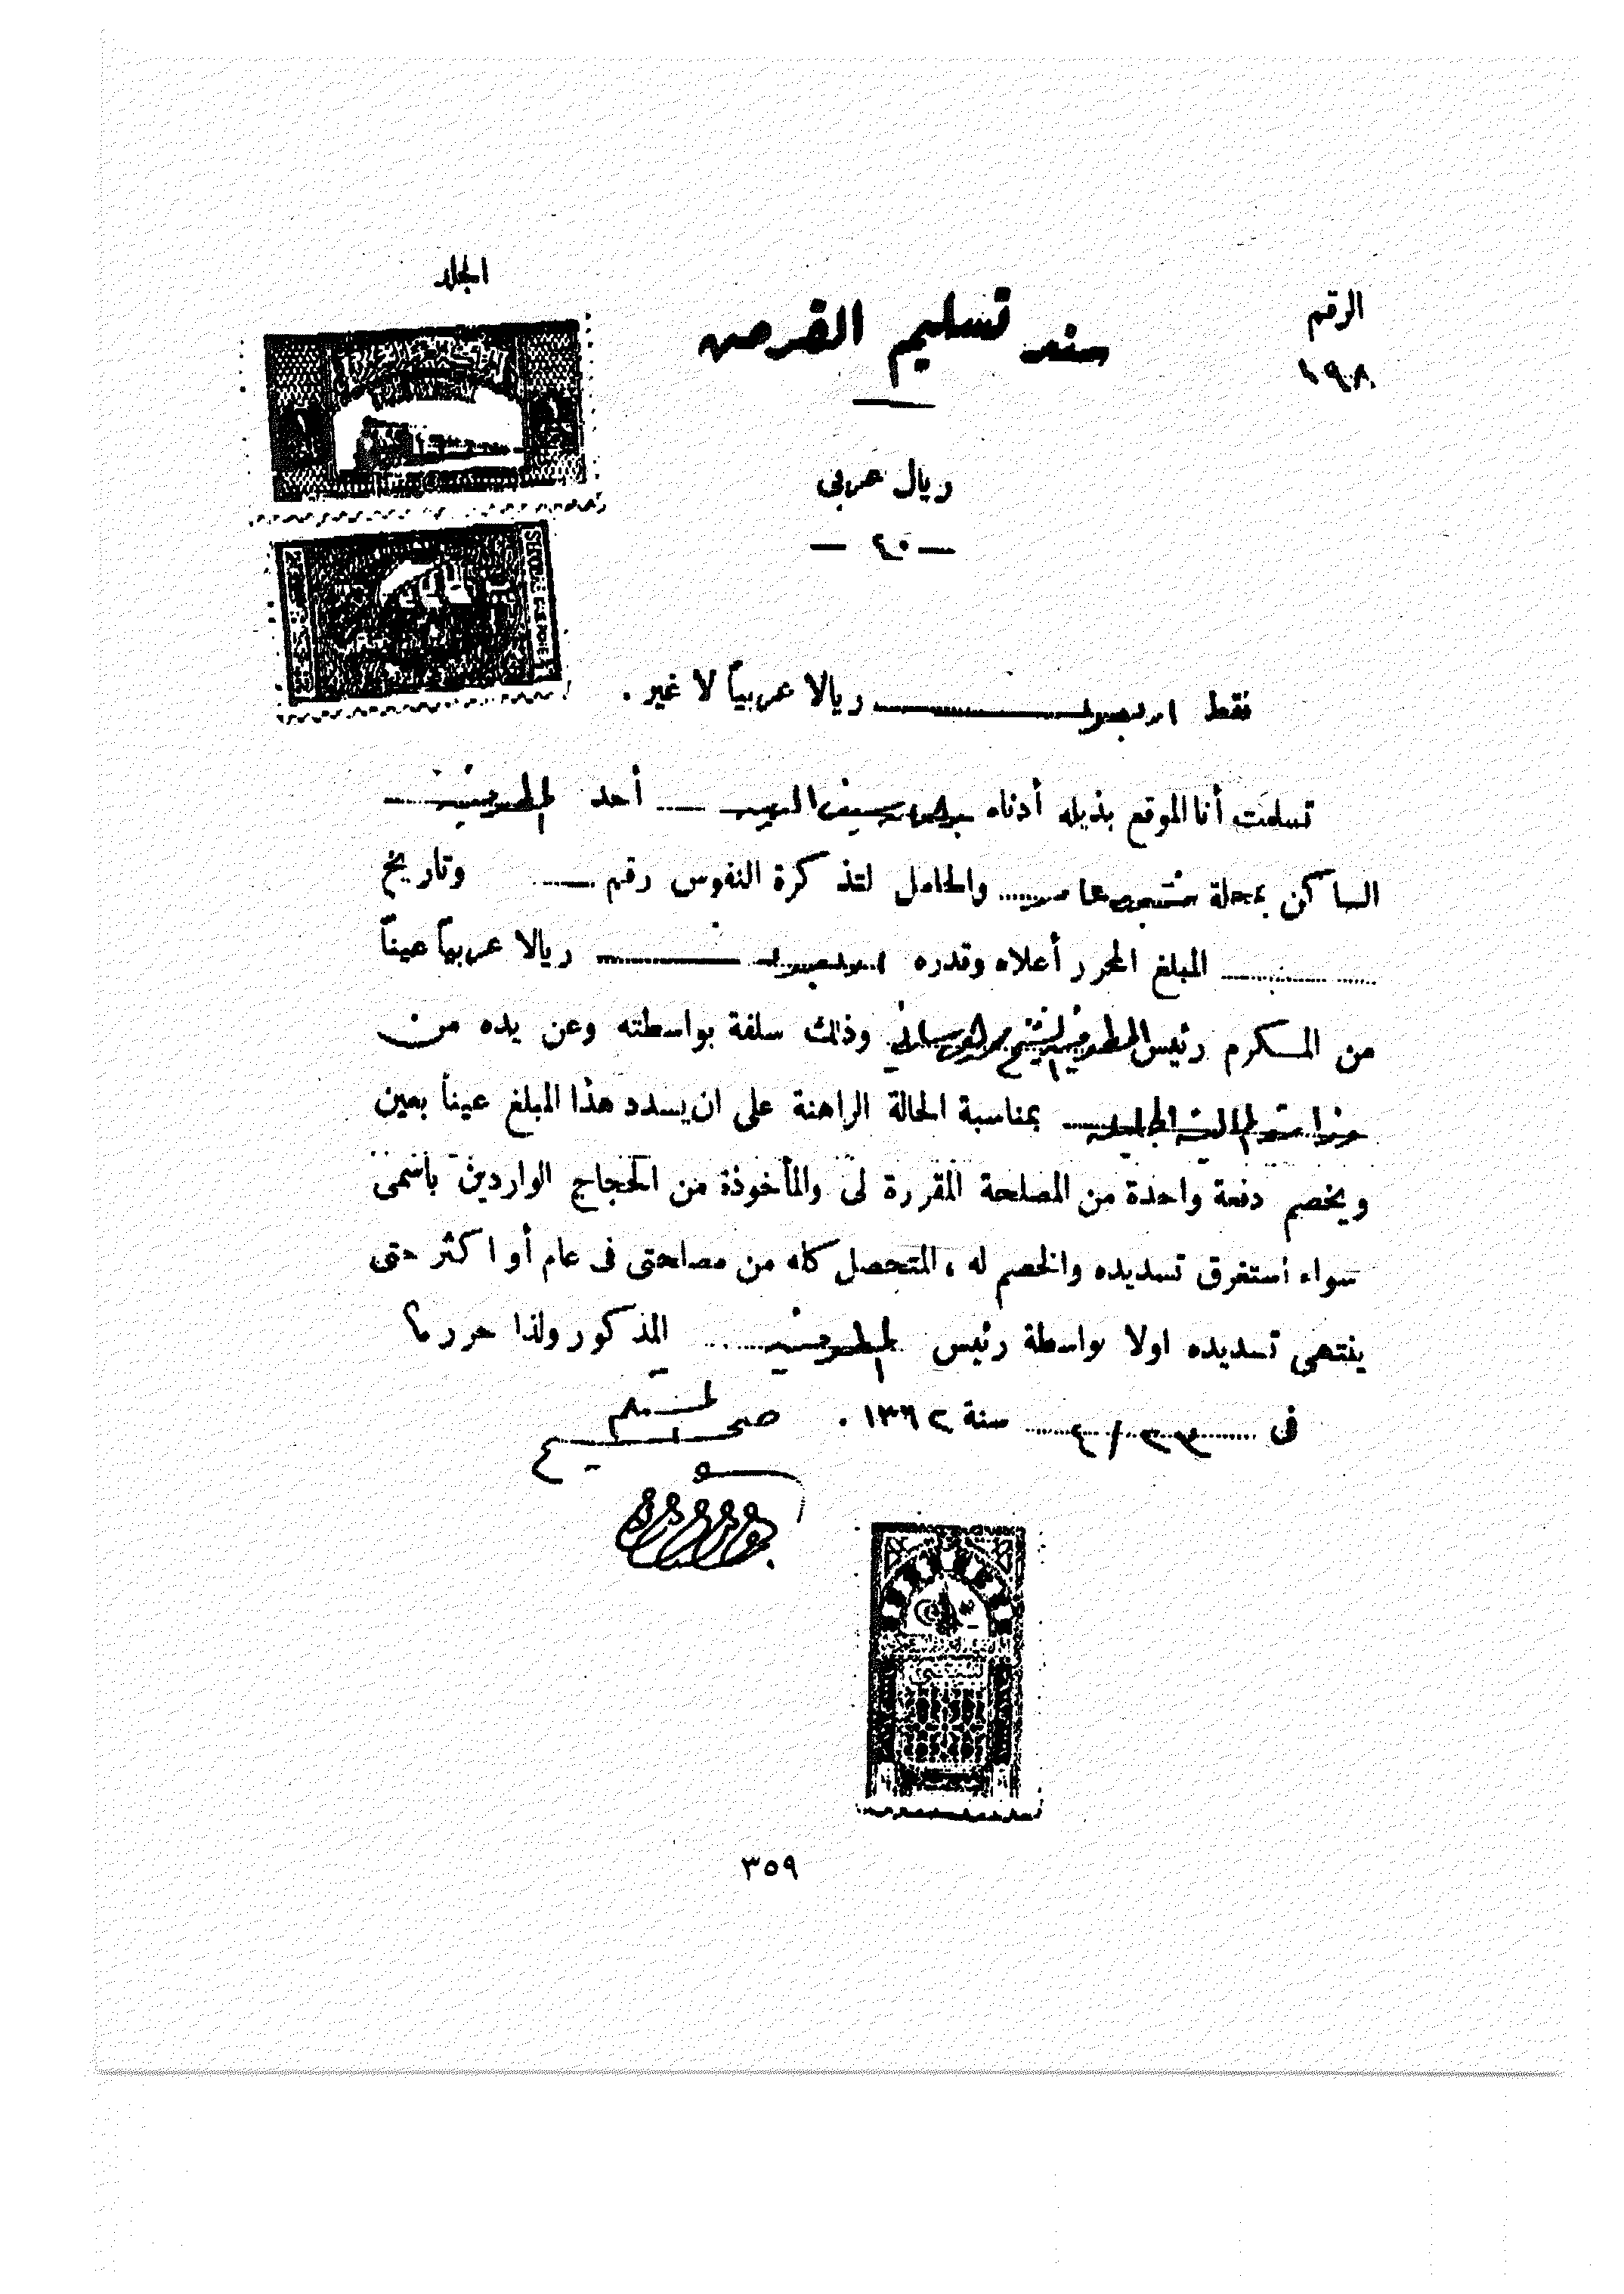 الجلد
الرقم
١٩٨
سند تسليم القرض
ريال عربى
— ٤٠ —
فقط اربعون ريالا عربياً لا غير .
تسلمت أنا الموقع بذيله أدناه أحد المطوفين
الساكن بمحلة والحامل لتذكرة النفوس رقم وتاريخ
المبلغ المحرر أعلاه وقدره اربعون ريالا عربياً عيناً
من المكرم رئيس المطوفين الشيخ وذلك سلفة بواسطته وعن يده من
خزانة المالية الجليلة بمناسبة الحالة الراهنة على ان يسدد هذا المبلغ عيناً بعين
ويخصم دفعة واحدة من المصلحة المقررة لى والمأخوذة من الحجاج الواردين باسمى
سواء استغرق تسديده والخصم له ، المتحصل كله من مصلحتى فى عام أو اكثر حتى
ينتهى تسديده اولا بواسطة رئيس المطوفين المذكور ولذا حرر م؟
فى سنة ١٣٦٢ .
٣٥٩